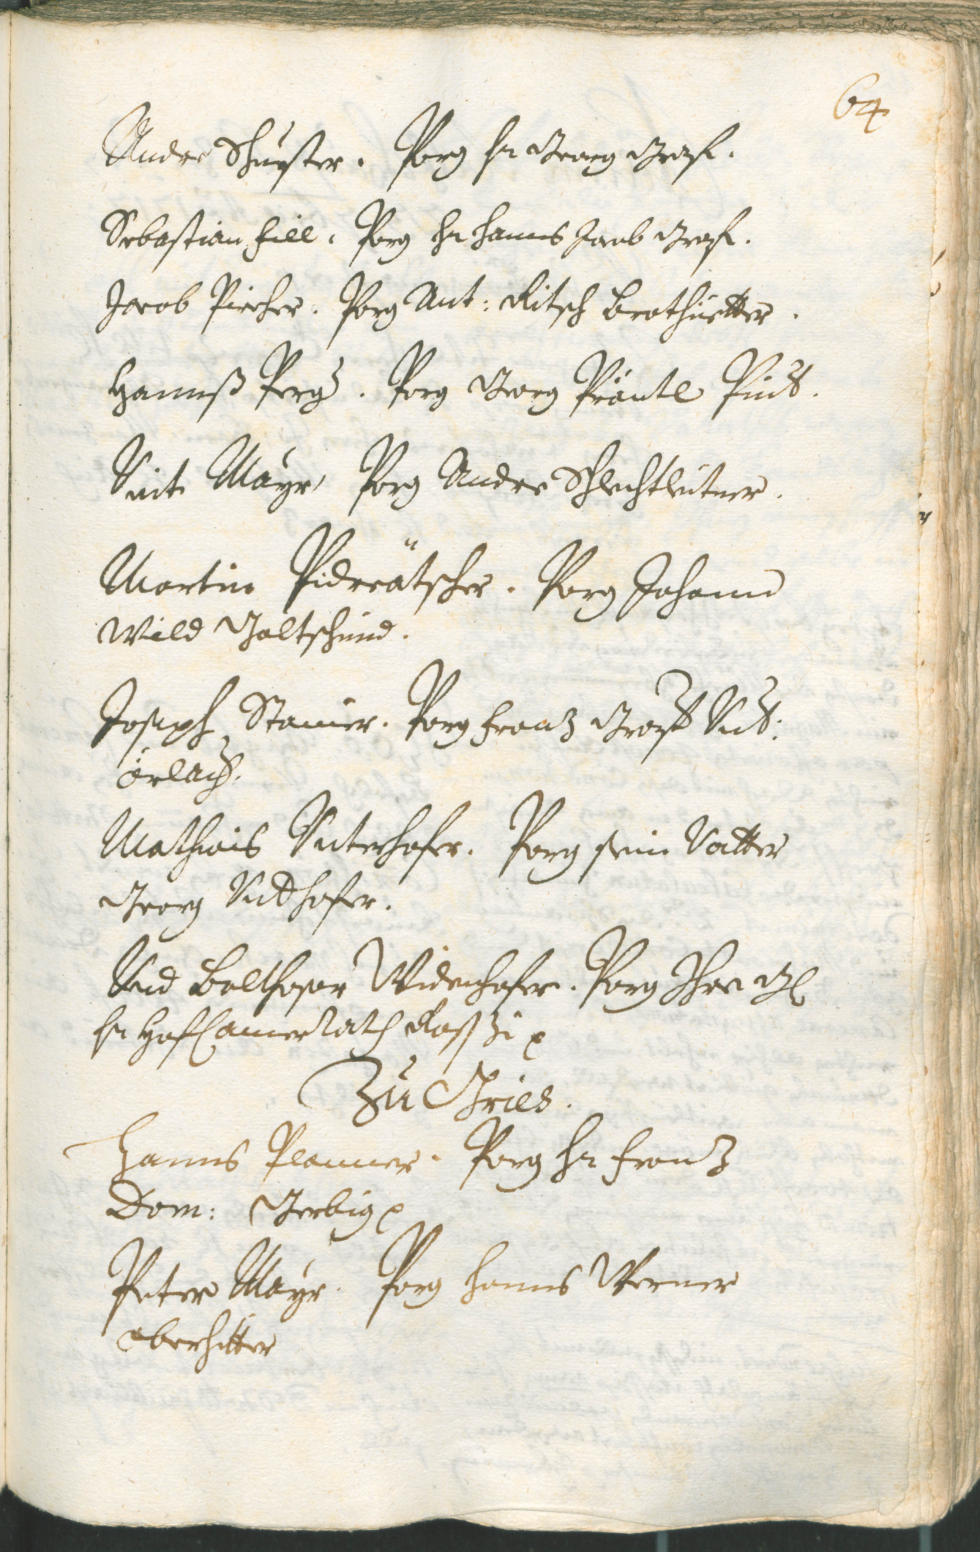 64
Andre Schuster. Porg hr Georg Graf.
Sebastian Fill. Porg hr Hanns Jacob Graf.
Jacob Pircher. Porg Ant: Ritsch Brothüetter.
Hannß Perg. Porg Georg Präntl
Veit Mayr, Porg Andre Schlechtleitner.
Martin Pidrätscher. Porg Johann
Wild
Joseph Stainer. Porg Franz
Mathias Unterhofer. Porg sein Vatter
Georg Undhofer.
Und Balthasar Widenhofer. Porg Ihro
hr HofCamerRath
Zu Gries.
Hanns Planner. Porg hr Franz
Dom: Gerbig
Peter Mayr. Porg Hanns Werner
oberhitter